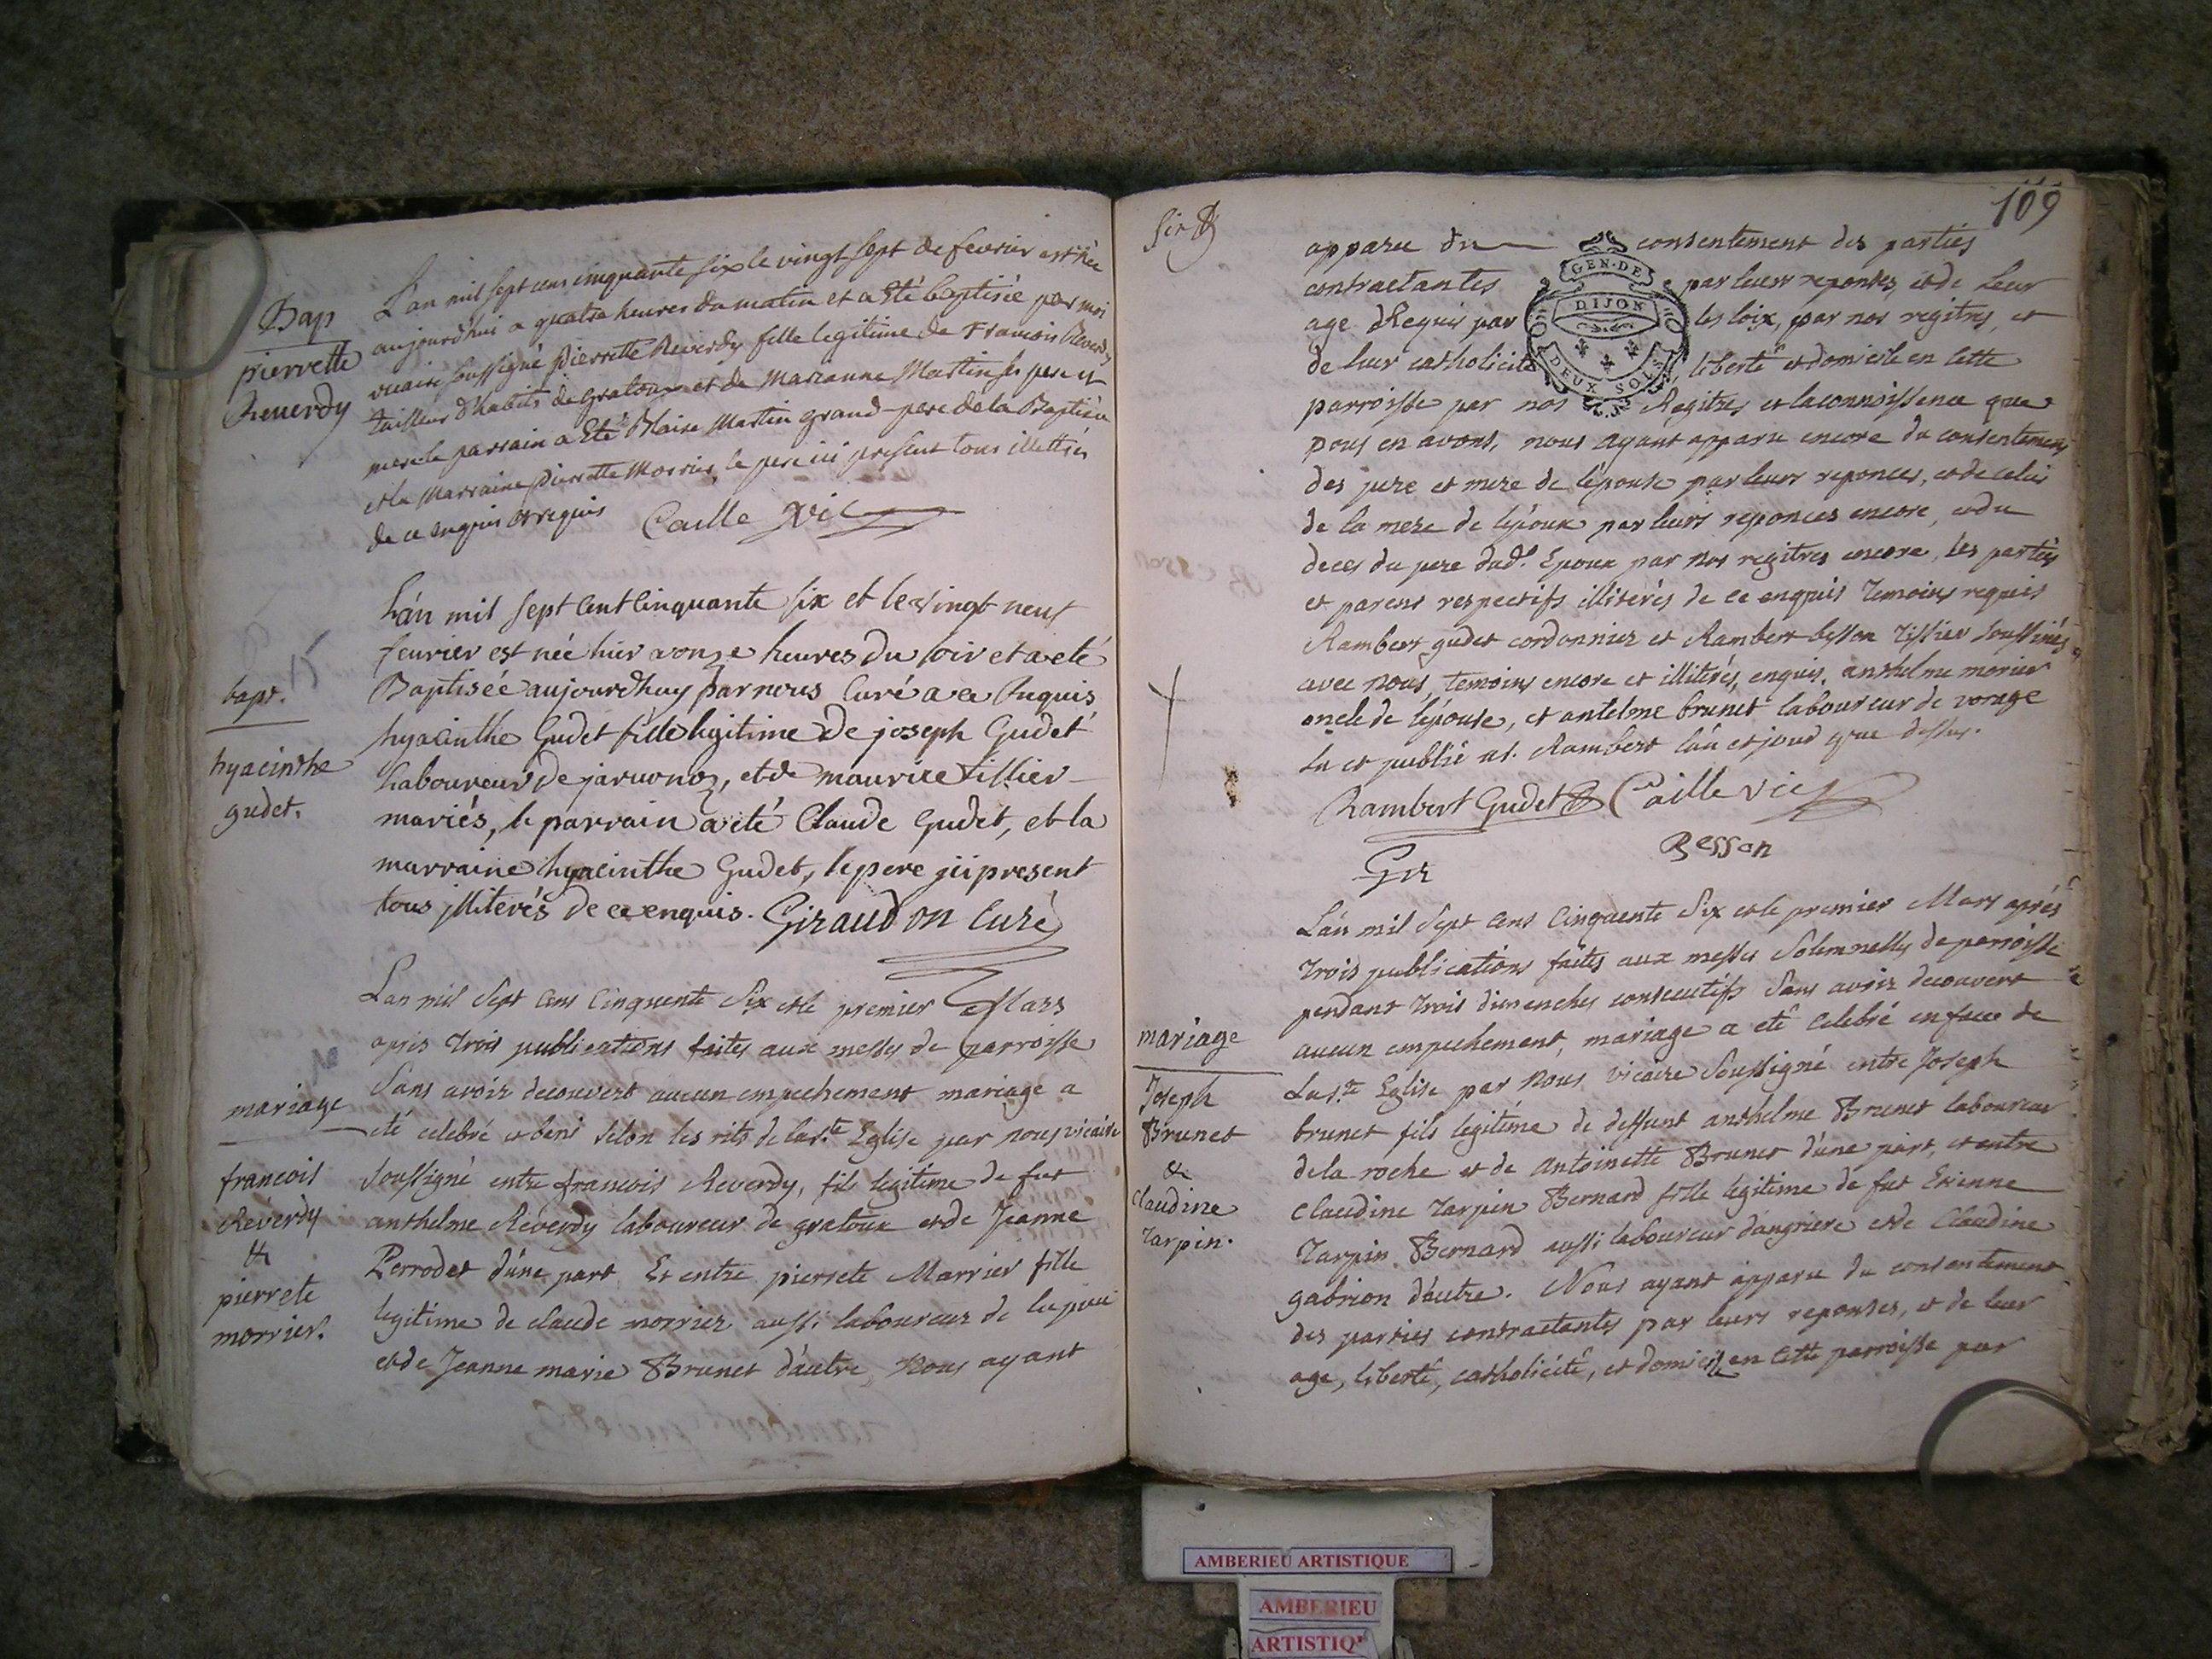 Bap
pierrette
Reuerdy
L'an mil sept cens cinquante six le vingt sept de fevrier est née
aujourdhui a quatre heures du matin et a Eté baptisée par moi
vicaire soussigné Pierrette Reverdy fille legitime de Francois Reverdy
tailleur d'habits de gratoux et de Marianne Martin ses pere et
mere le parrain a Eté Blaise Martin grand-pere de la Baptisée
et la Marraine Pierrette Morrier, le pere ici present tous illettrés
de ce enquis et requis Caille Vic
bapt.
hyacinthe
gudet.
L'an mil sept Cent Cinquante six et le vingt neuf
feurier est née hier a onze heures du soir et a eté
Baptisée aujourdhuy par nous Curé a ce Requis
hyacinthe Gudet fille legitime de joseph Gudet
Laboureur de jaruonoz, et de maurixe tissier
mariés, le parrain a eté Claude Gudet, et la
marraine hyacinthe Gudet, le pere jci present
tous jlliterés de ce enquis. Giraudon Curé
mariage
francois
Reverdy
&
pierrete
morrier.
L'an mil Sept Cens Cinquente Six et le premier Mars
après trois publications faites aux messes de parroisse
Sans avoir decouvert aucun empechement mariage a
eté celebré et beni selon les rits de la s.te Eglise par nous vicaire
soussigné entre francois Reverdy, fils legitime de fut
anthelme Reverdy laboureur de gratoux et de Jeanne
Perrodet d'une part Et entre pierrete Marrier fille
legitime de claude morrier aussi laboureur de
et de Jeanne marie Brunet d'autre, Nous ayant
109
apparu du consentement des parties
contractantes par leurs reponses, et de leur
age Requis par les loix, par nos regitres, et
de leur catholicité, liberté et domicile en cette
parroisse par nos Regitres et la connoissence que
nous en avons, nous ayant apparu encore du consentement
des pere et mere de l'epouse par leurs reponces, et de celui
de la mere de l'epoux par leurs reponces encore, et du
deces du pere dud.t Epoux par nos regitres encore, les parties
et parens respectifs illiterés de ce enquis temoins requis
Rambert gudet cordonnier et Rambert besson tissier soussinés
avec nous, temoins encore et illiterés, enquis, anthelme morier
oncle de l'epouse, et antelme brunet laboureur de vorage
Lu et publié a s. Rambert l'an et jour que dessus.
GEN·DE
DIJON
DEUX SOLS
Rambert Gudet Caille vic
Besson
Gir
mariage
Joseph
Brunet
&
Claudine
Tarpin.
L'an mil Sept Cens Cinquente Six et le premier Mars aprés
trois publications faites aux messes Solemnelles de parroisse
pendant trois dimenches consecutifs Sans avoir decouvert
aucun empechement, mariage a eté celebré en face de
La s.te Eglise par Nous vicaire Soussigné entre Joseph
brunet fils legitime de deffunt anthelme Brunet laboureur
de la roche et de Antoinette Brunet d'une part, et entre
Claudine Tarpin Bernard fille legitime de fut Etienne
Tarpin Bernard aussi laboureur d'angriere et de Claudine
gabrion d'autre. Nous ayant apparu du consentement
des parties contractantes par leurs reponses, et de leur
age, liberté, catholicité, et domicile en cette parroisse par
AMBERIEU ARTISTIQUE
AMBERIEU
ARTISTIQ